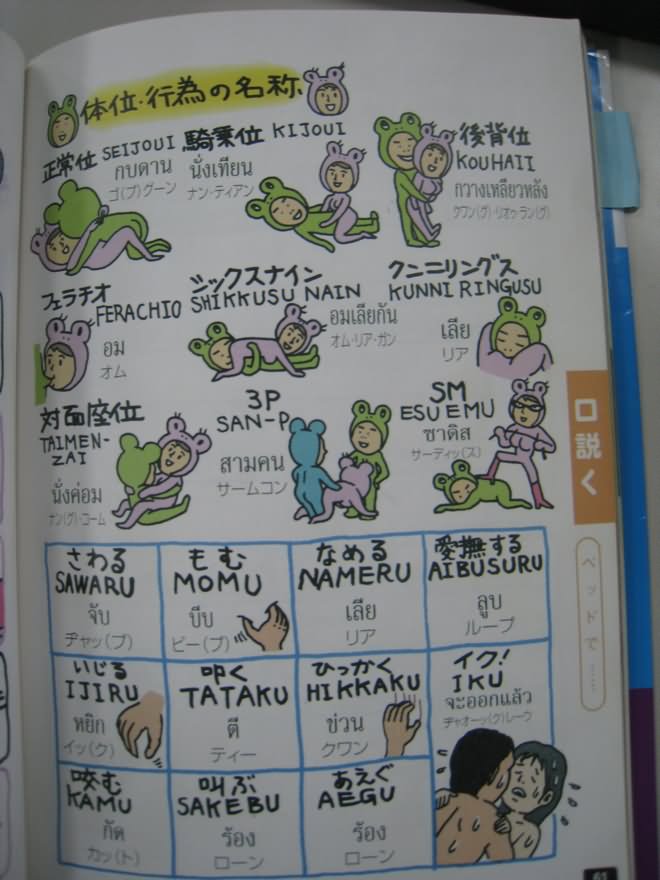 体位・行為の名称
正常位 SEIJOUI
กบดาน
ゴ(ブ)グーン
騎乗位 KIJOUI
นั่งเทียน
ナン・ティアン
後背位
KOUHAII
กวางเหลียวหลัง
クワン(グ)・リオゥ・ラン(グ)
フェラチオ
FERACHIO
อม
オム
シックスナイン
SHIKKUSU NAIN
อมเลียกัน
オム・リア・ガン
クンニリングス
KUNNIRINGUSU
เลีย
リア
対面座位
TAIMEN-
ZAI
นั่งค่อม
ナン(グ)・コーム
3P
SAN-P
สามคน
サームコン
SM
ESUEMU
ซาดิส
サーディッ(ス)
さわる
SAWARU
จับ
ヂャッ(プ)
もむ
MOMU
บีบ
ビー(プ)
なめる
NAMERU
เลีย
リア
愛撫する
AIBUSURU
ลูบ
ループ
いじる
IJIRU
หยิก
イッ(ク)
叩く
TATAKU
ตี
ティー
ひっかく
HIKKAKU
ข่วน
クワン
イク!
IKU
จะออกแล้ว
ヂャオーッ(ク)レーウ
咬む
KAMU
กัด
カッ(ト)
叫ぶ
SAKEBU
ร้อง
ローン
あえぐ
AEGU
ร้อง
ローン
口説く
ベッドで……
61